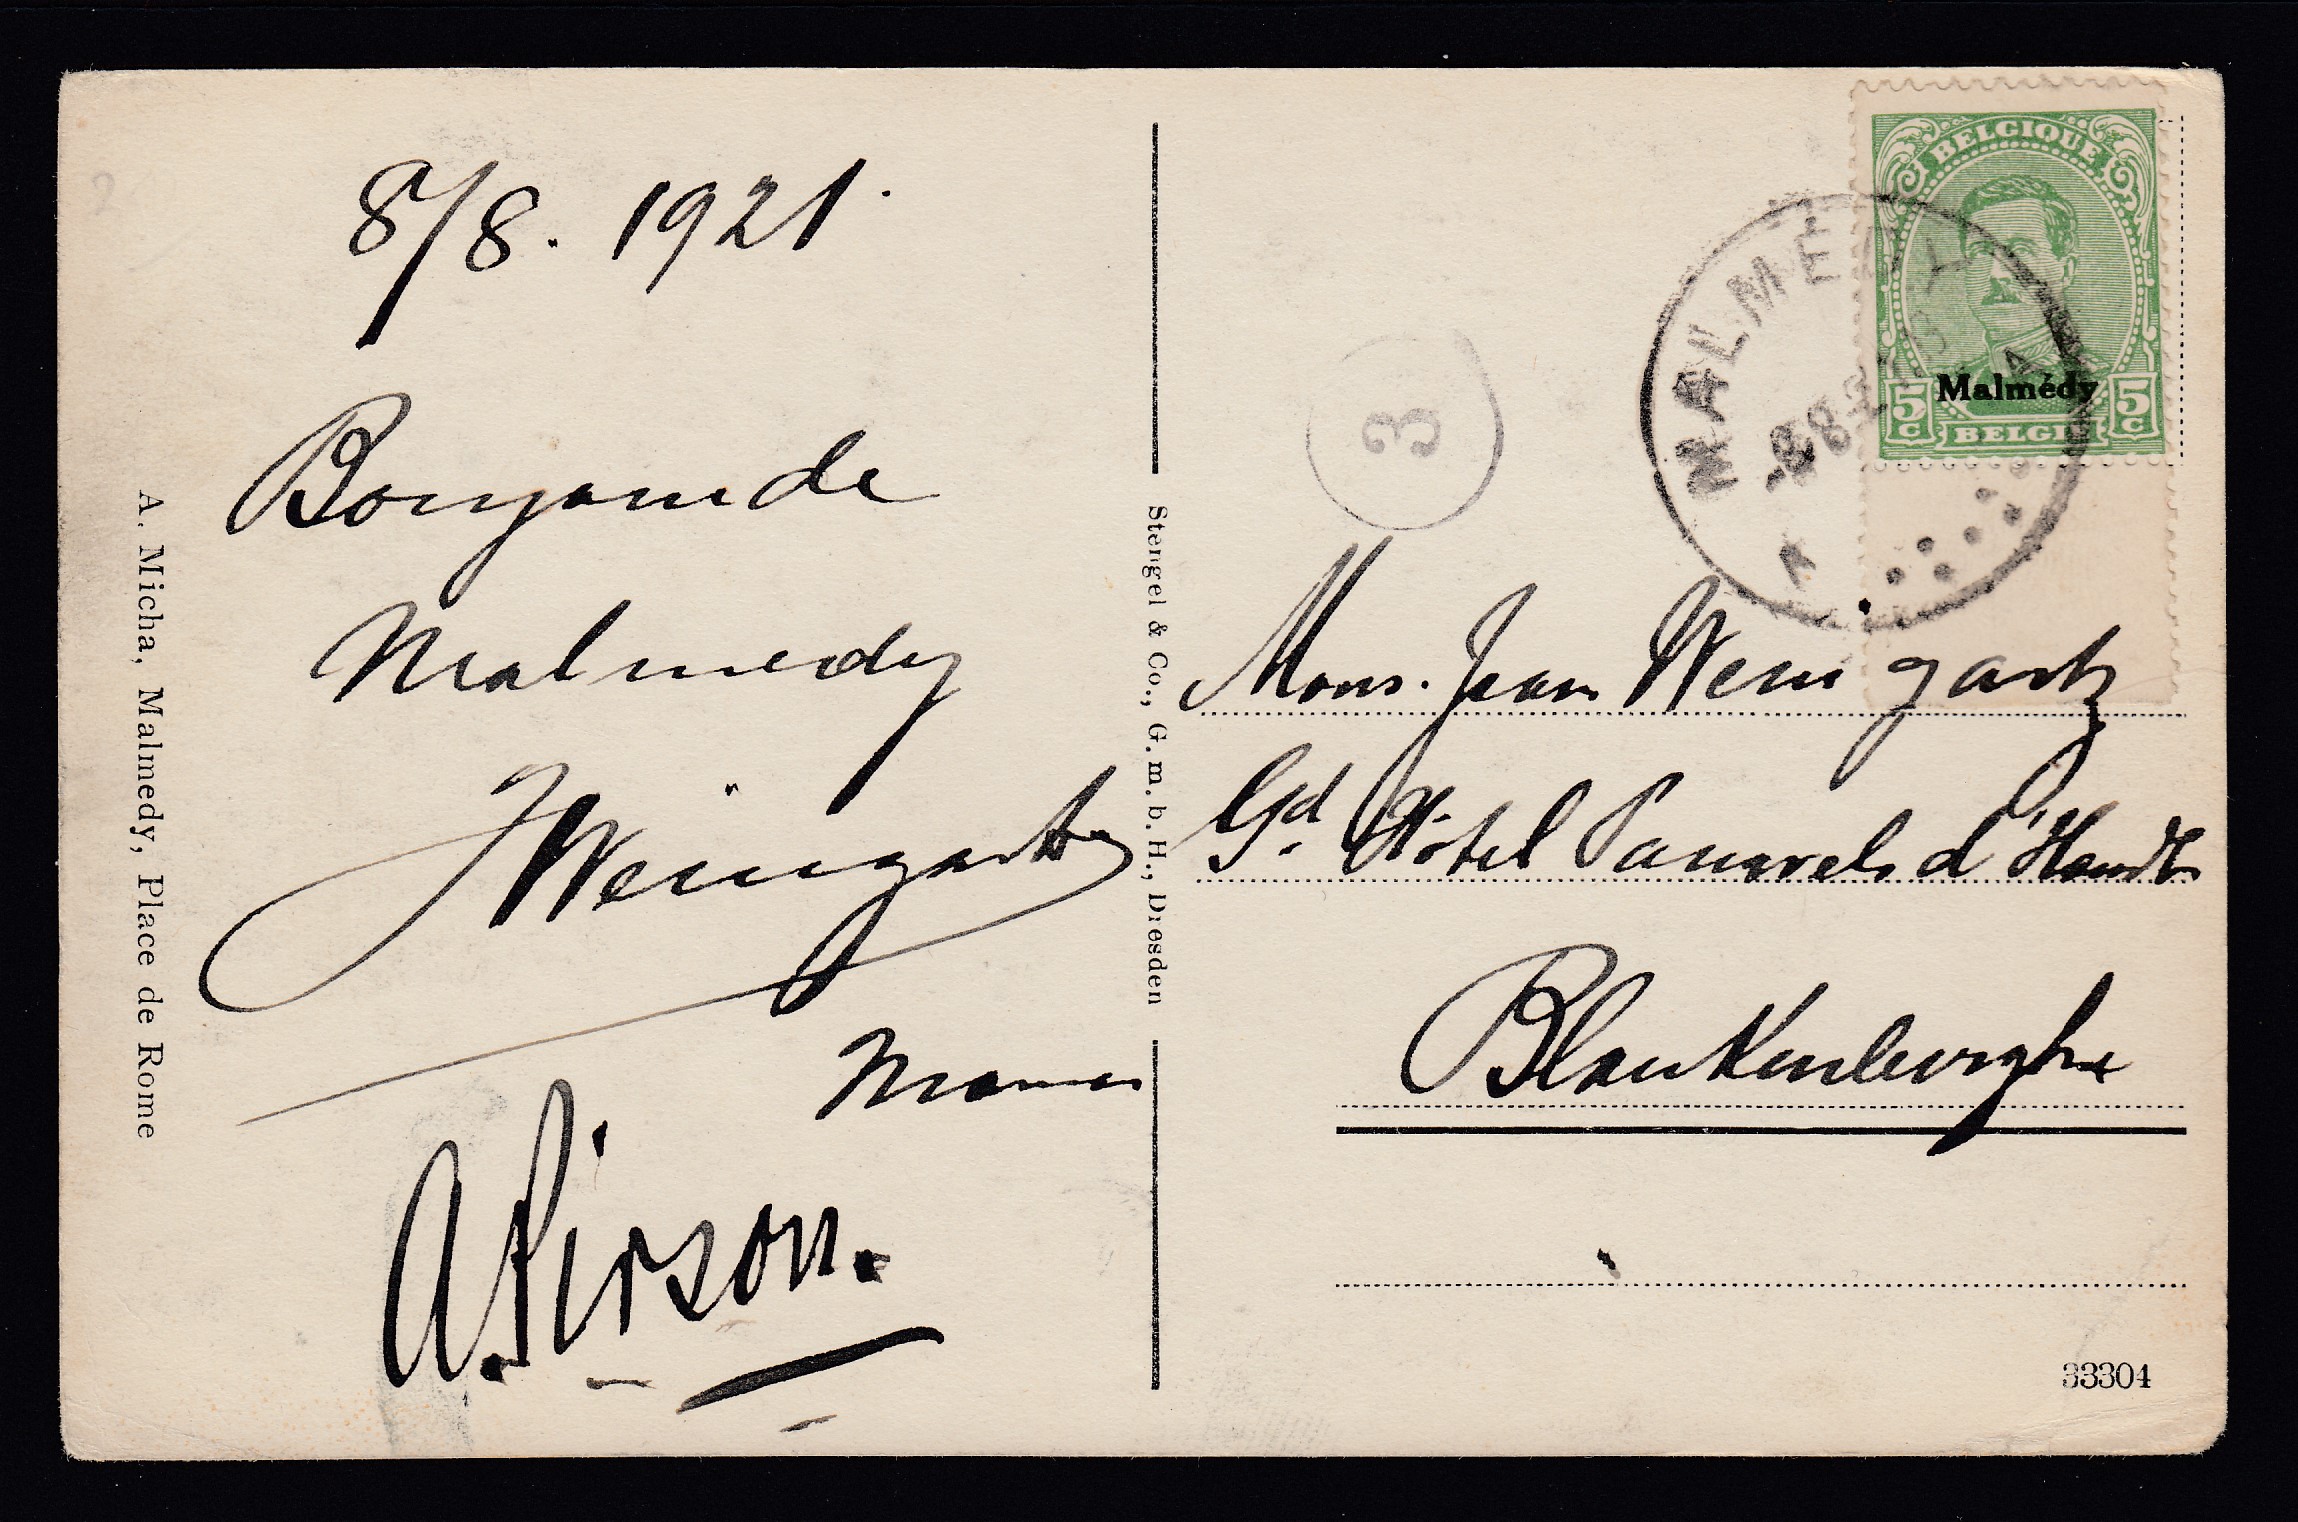 8/8. 1921.
Bonjour de
Malmedy
JWeingartz
Maman
A. Pirson.
A. Micha, Malmedy, Place de Rome
Stengel & Co., G. m. b. H., Dresden
BELGIQUE
Malmédy
5 C BELGIË 5 C
MALMEDY
-8 8
3
Mons. Jean Weingartz
Gd. Hôtel Pauwels d'Hondt
Blankenberghe
33304